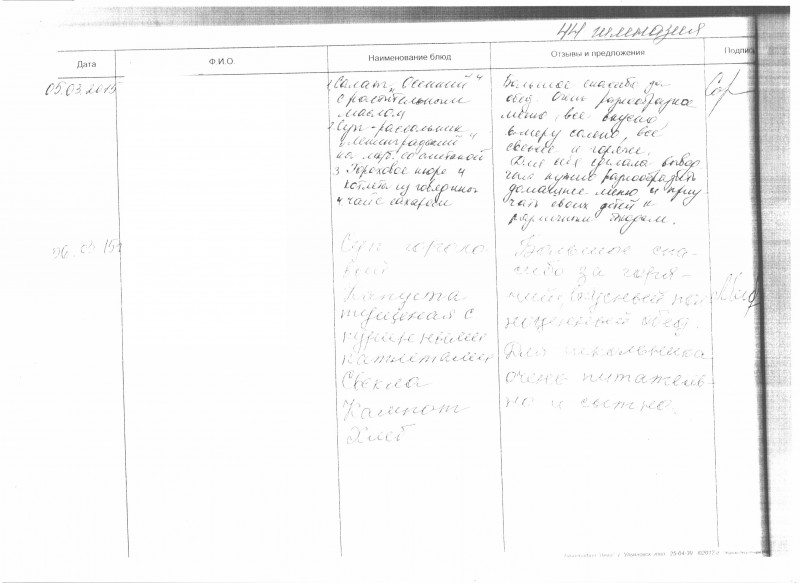 44 гимназия
Дата Ф.И.О. Наименование блюд Отзывы и предложения Подпись
05.03.2015
1 Салат „Осенний"
с растительным
маслом
2 Суп-рассольник
„Ленинградский"
со сметаной
3 Гороховое пюре и
котлеты из говядины
4 чай с сахаром
Большое спасибо за
обед. Очень разнообразное
меню, все вкусно
в меру солено, все
свежее и горячее.
Для себя сделала вывод
что нужно разнообразить
домашнее меню и приу
чать своих детей к
различным блюдам.
Сор
26 03 15г
Суп горохо
вый
Капуста
тушеная с
куриными
катлетами
Свекла
Кампот
Хлеб
Большое спа-
сибо за горя-
чий вкусный пол
ноценный обед.
Для школьника
очень питатель-
но и сытно.
г. Ульяновск